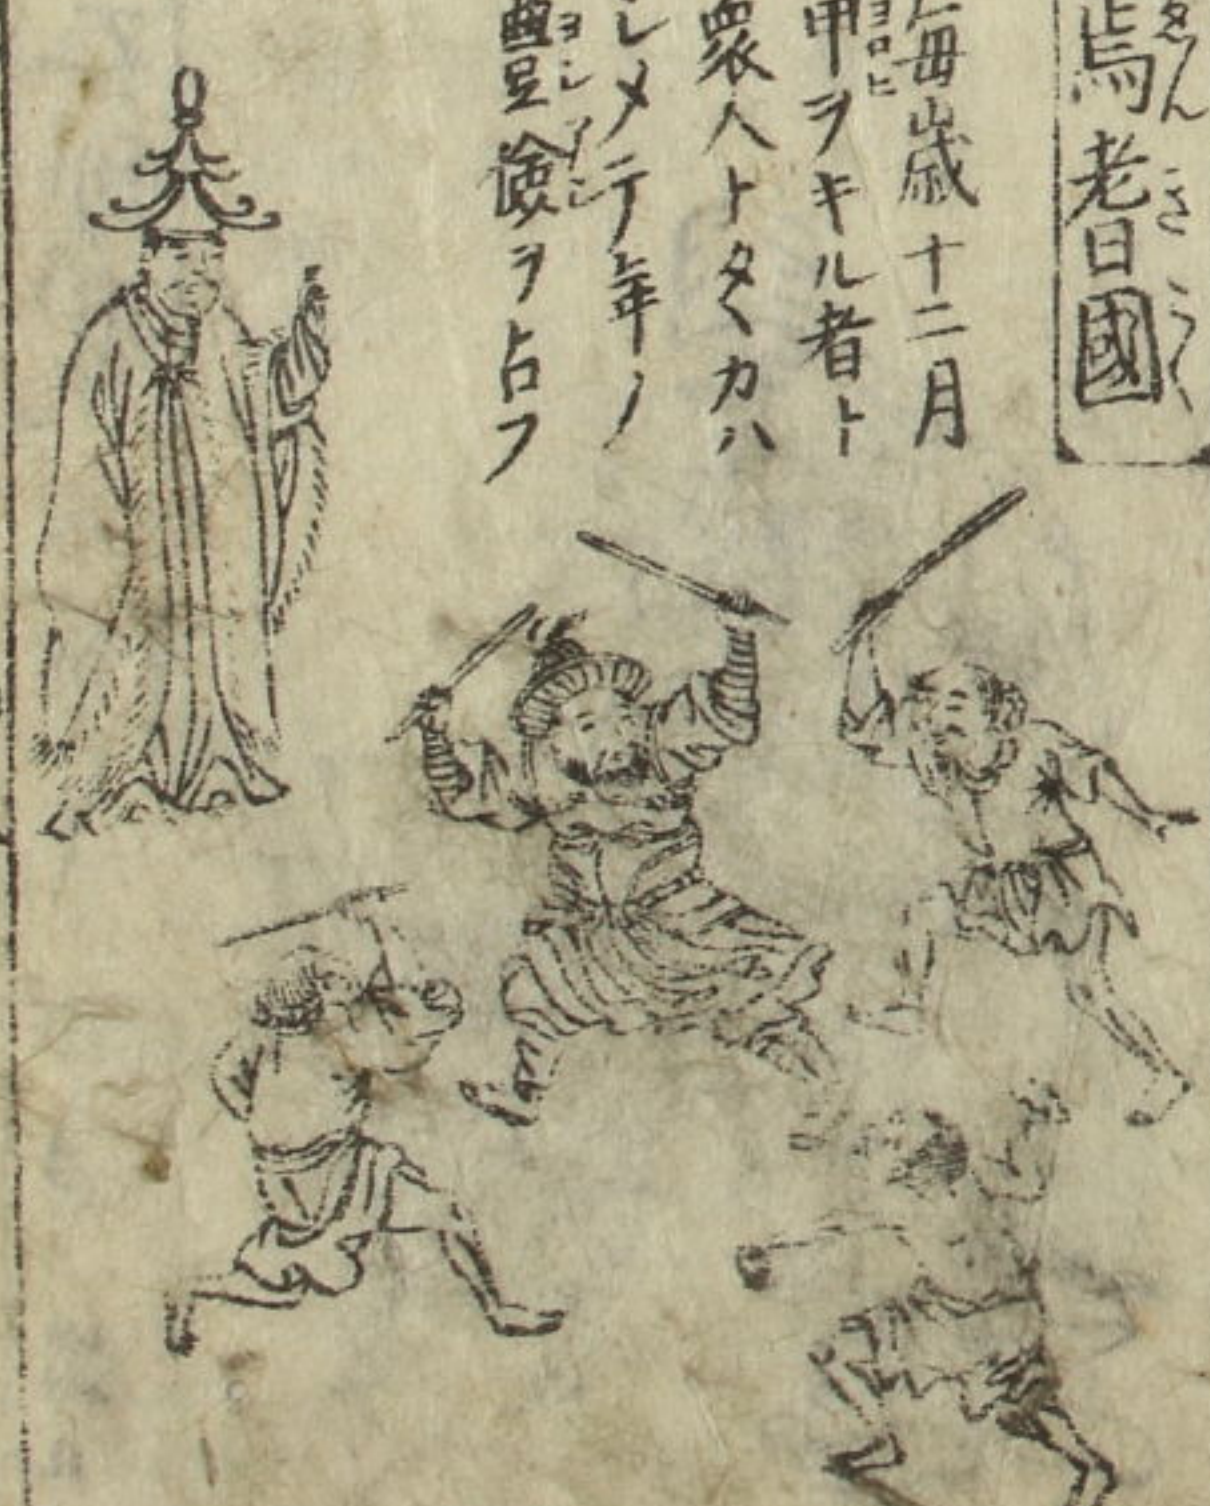 焉耆國
ゑんきこく
毎歳十二月
甲ヲキル者ト
ヨロヒ
衆人トタヽカハ
シメテ年ノ
豊儉ヲ占フ
ヨシアシ